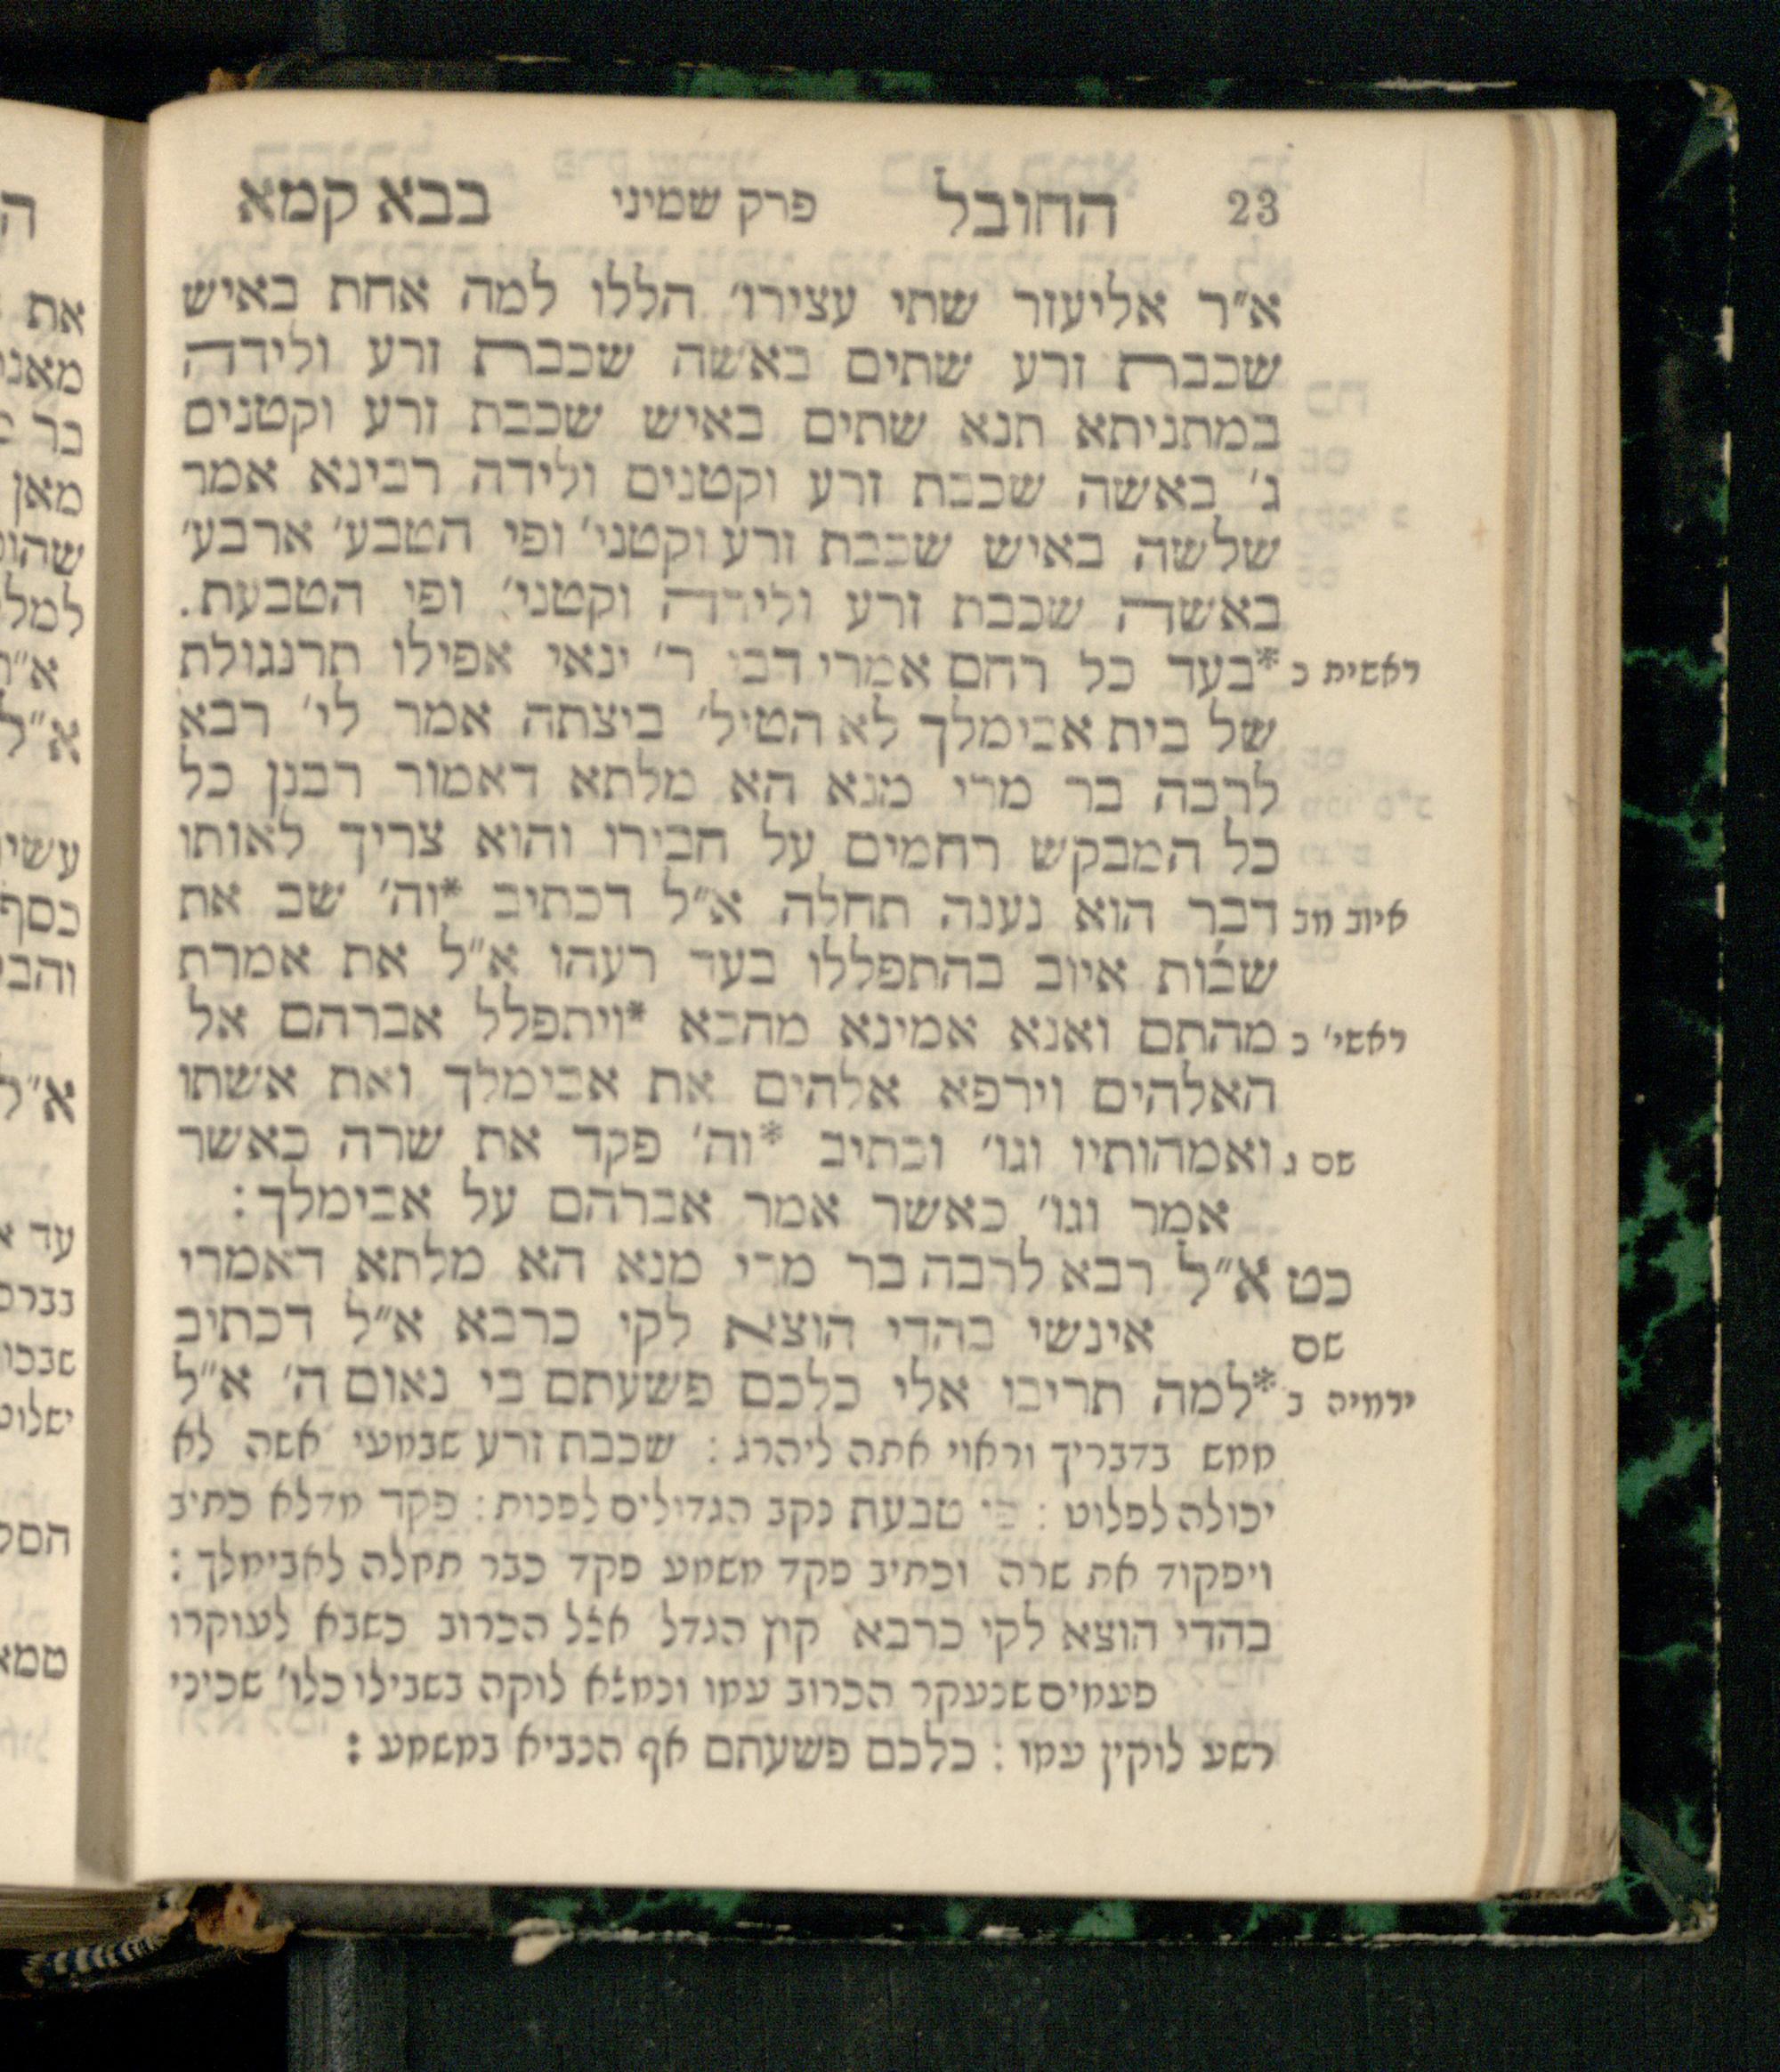 23 החובל פרק שמיני בבא קמא
א״ר אליעזר שתי עצירו׳ הללו למה אחת באיש
שכבת זרע שתים באשה שכבת זרע ולידה
במתניתא תנא שתים באיש שכבת זרע וקטנים
ג׳ באשה שכבת זרע וקטנים ולידה רבינא אמר
שלשה באיש שכבת זרע וקטני׳ ופי הטבע׳ ארבע׳
באשה שכבת זרע ולידה וקטני׳ ופי הטבעת.
ראשית כ *בעד כל רחם אמרי דבי ר׳ ינאי אפילו תרנגולת
של בית אבימלך לא הטיל׳ ביצתה אמר לי׳ רבא
לרבה בר מרי מנא הא מלתא דאמור רבנן כל
כל המבקש רחמים על חבירו והוא צריך לאותו
איוב מב דבר הוא נענה תחלה א״ל דכתיב *וה׳ שב את
שבות איוב בהתפללו בעד רעהו א״ל את אמרת
ראשי׳ כ מהתם ואנא אמינא מהכא *ויתפלל אברהם אל
האלהים וירפא אלהים את אבימלך ואת אשתו
שם ג ואמהותיו וגו׳ וכתיב *וה׳ פקד את שרה כאשר
אמר וגו׳ כאשר אמר אברהם על אבימלך:
כט א״ל רבא לרבה בר מרי מנא הא מלתא דאמרי
שם אינשי בהדי הוצא לקי כרבא א״ל דכתיב
ירמיה ב *למה תריבו אלי כלכם פשעתם בי נאום ה׳ א״ל
ממש בדבריך וראוי אתה ליהרג : שכבת זרע שבמעי אשה לא
יכולה לפלוט : פי טבעת נקב הגדולים לפנות : פקד מדלא כתיב
ויפקוד את שרה וכתיב פקד משמע פקד כבר תחלה לאבימלך :
בהדי הוצא לקי כרבא קוץ הגדל אצל הכרוב כשבא לעוקרו
פעמים שנעקר הכרוב עמו ונמצא לוקה בשבילו כלו׳ שכיני
רשע לוקין עמו : כלכם פשעתם אף הנביא במשמע :